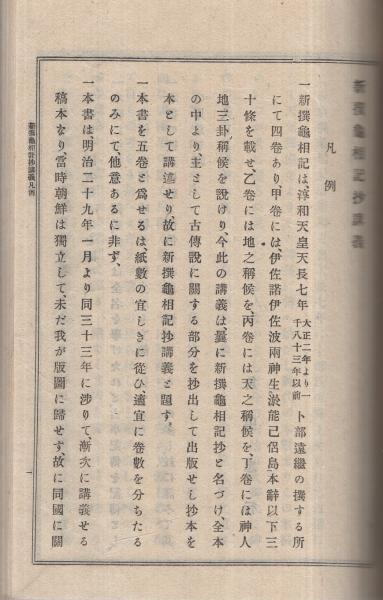 凡例
一新撰龜相記は、淳和天皇天長七年 大正二年より一千八十三年以前 卜部遠繼の撰する所
にて四卷あり、甲卷には、伊佐諾伊佐波兩神生淤能己侶島本辭以下三
十條を載せ、乙卷には地之稱候を、丙卷には天之稱候を、丁卷には神人
地三卦稱候を說けり、今此の講義は、曩に新撰龜相記抄と名づけ、全本
の中より、主として古傳說に關する部分を抄出して出版せし抄本を
本として講述せり、故に新撰龜相記抄講義と題す。
一本書を五卷と爲せるは、紙數の宜しきに從ひ適宜に卷數を分ちたる
のみにて、他意あるに非ず。
一本書は、明治二十九年一月より同三十三年に涉りて、漸次に講義せる
稿本なり、當時朝鮮は獨立して、未だ我が版圖に歸せず、故に同國に關
新撰龜相記抄講義凡例
一